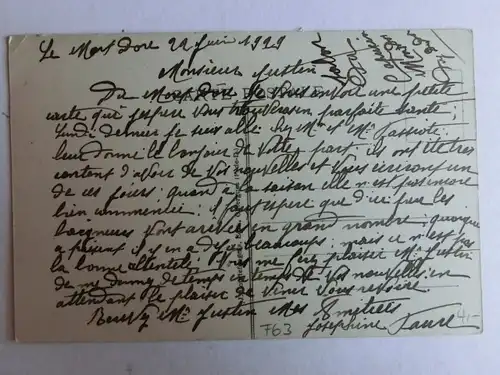 Le Mont Dore 22 Juin 1929
Monsieur Justin
Du Mont Dore Je vous envoie une petite
carte que j'espere vous trouvera en parfaite santé
lundi dernier je suis allé chez Mr et Me
leur donné le bonjour de votre part ils ont été très
content d'avoir de vos nouvelles et vous écriront un
de ces jours quand a la saison elle n'est pas encore
bien commencée il faut espere que d'ici peu les
baigneurs vont arrives en grand nombre quoique
a présent il y en a déja beaucoups mais ce n'est pas
la bonne
de me donner de temps en temps de vos nouvelles en
attendant le plaisir de venir vous revoire
Recevez Mr Justin mes amitiés
Josephine Faure
CARTE POSTALE
F63
4,-